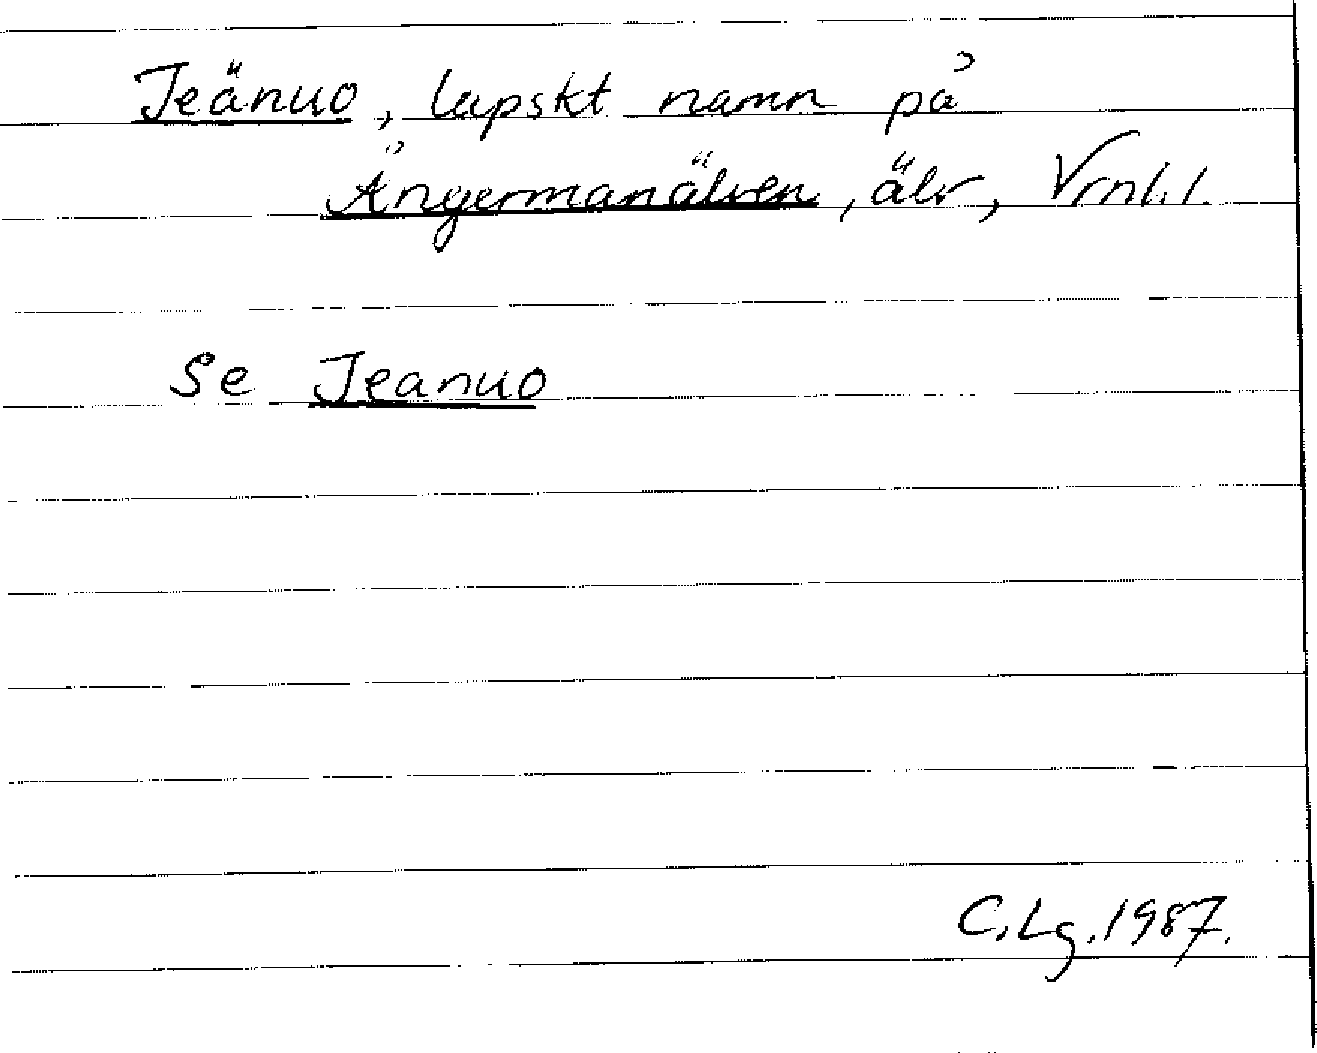 Jeänuo, lapskt namn på
Ångermanälven, älv, Vrnl.l.
Se Jeanuo
C.Lg.1987.